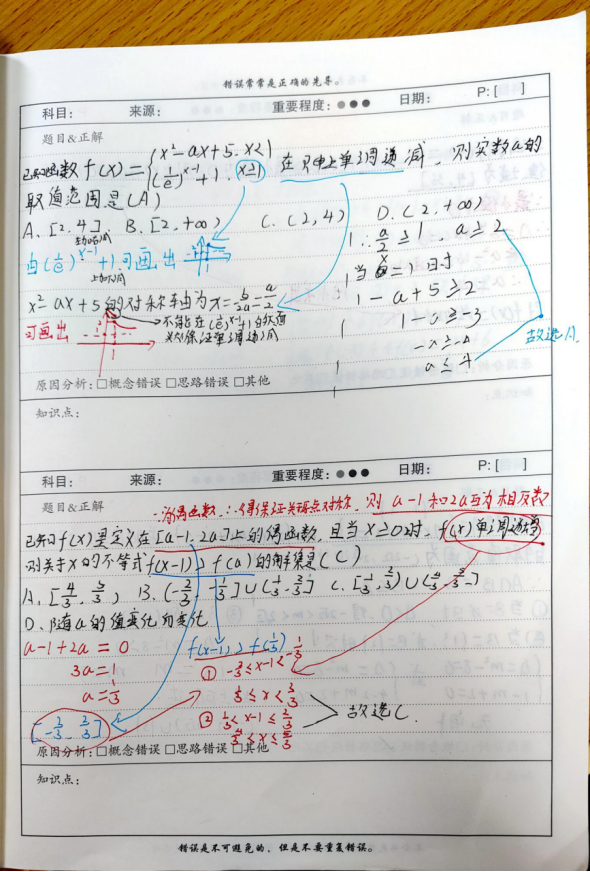 错误常常是正确的先导。
科目: 来源: 重要程度: 日期: P: [ ]
题目&正解
已知函数f(x)={x²-ax+5, x<1
(1/e)^(x-1)+1, x≥1 在R上单调递减, 则实数a的
取值范围是(A)
A. [2,4] B. [2,+∞) C. (2,4) D. (2,+∞)
由(1/e)^(x-1)+1可画出
x²-ax+5的对称轴为x=-b/2a=a/2
可画出
∴a/2≥1, a≥2
当x=1时
1-a+5≥2
1-a≥-3
-a≥-4
a≤4
故选A.
原因分析: □概念错误 □思路错误 □其他
知识点:
科目: 来源: 重要程度: 日期: P: [ ]
题目&正解
为偶函数, ∴得保证关于原点对称, 则a-1和2a互为相反数
已知f(x)是定义在[a-1,2a]上的偶函数, 且当x≥0时, f(x)单调递增
则关于x的不等式f(x-1)>f(a)的解集是(C)
D. 随a的值变化而变化
a-1+2a=0
3a=1
a=1/3
[-2/3, 2/3]
f(x-1)>f(1/3)
① -2/3≤x-1<-1/3
1/3≤x<2/3
② 1/3<x-1≤2/3
4/3<x≤5/3
故选C.
原因分析: □概念错误 □思路错误 □其他
知识点:
错误是不可避免的, 但是不要重复错误。